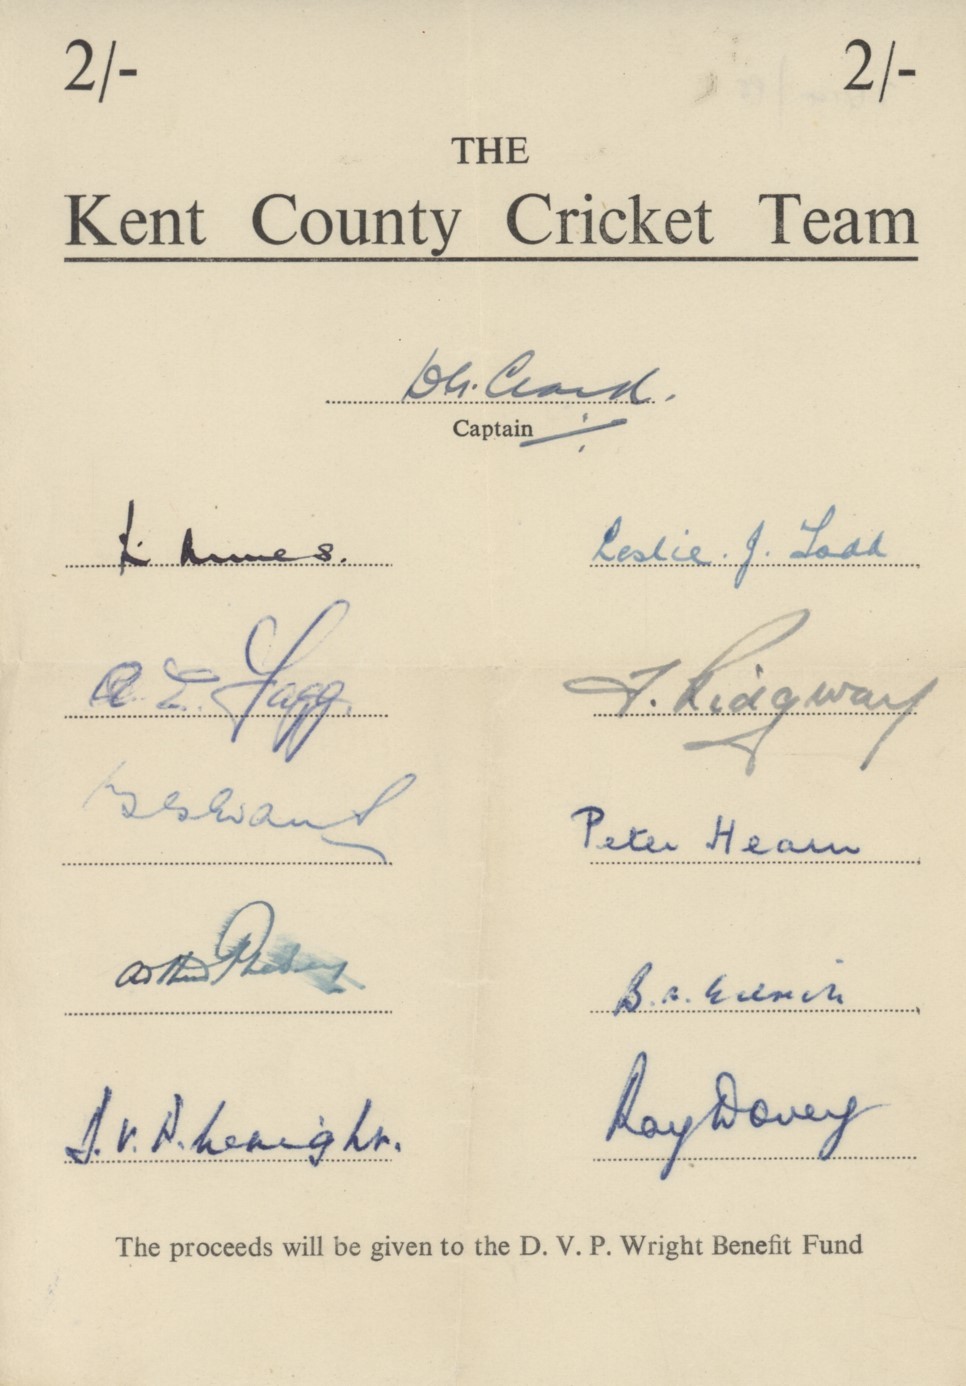 2/- 2/-
THE
Kent County Cricket Team
D.G. Clark.
Captain
L. Ames. Leslie. J. Todd
A. E. Fagg. F. Ridgway
T G Evans Peter Hearn
Arthur Phebey B. R. Edrich
D. V. P. Wright. Ray Dovey
The proceeds will be given to the D. V. P. Wright Benefit Fund